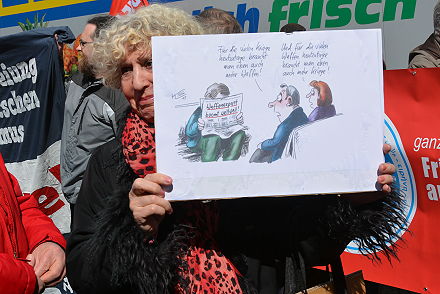 ch frisch
eitung
tschen
mus
Für die vielen Kriege
heutzutage braucht
man eben auch
mehr Waffen!
Und für die vielen
Waffen heutzutage
braucht man eben
auch mehr Kriege!
Waffenexport
boomt weltweit!
ganz
Fri
a